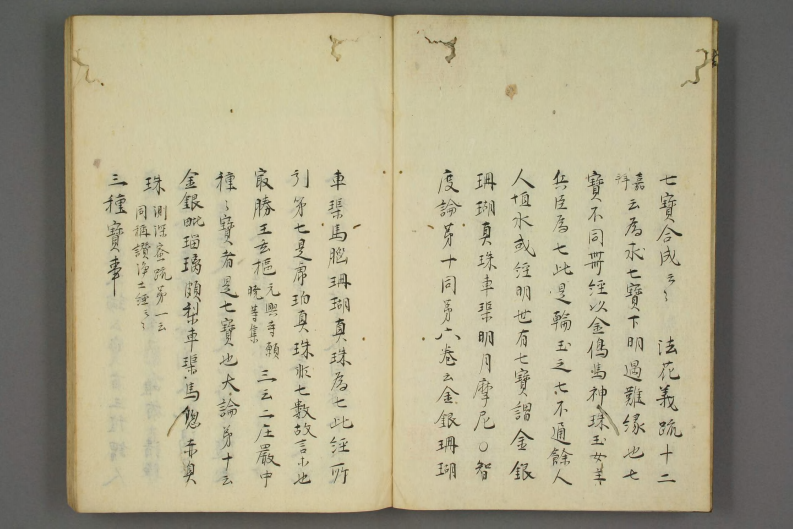 七寶合成云〻 法花義疏十二
嘉祥云為求七寶下明過難緣也七
寶不同無經以金馬神珠玉女主
兵臣為七此是輪王之七不通餘人
人恒求或經明世有七寶謂金銀
珊瑚真珠車渠明月摩尼〇智
度論第十同第六卷云金銀珊瑚
車渠馬腦珊瑚真珠為七此經所
列第七是虎珀真珠非七數故言小也
最勝王玄樞元興寺願曉等集三云二莊嚴中
種〻寶者是七寶也大論第十云
金銀毗瑠璃頗梨車渠馬腦赤真
珠測深密疏第一云
同稱讚淨土經云〻
三種寶車